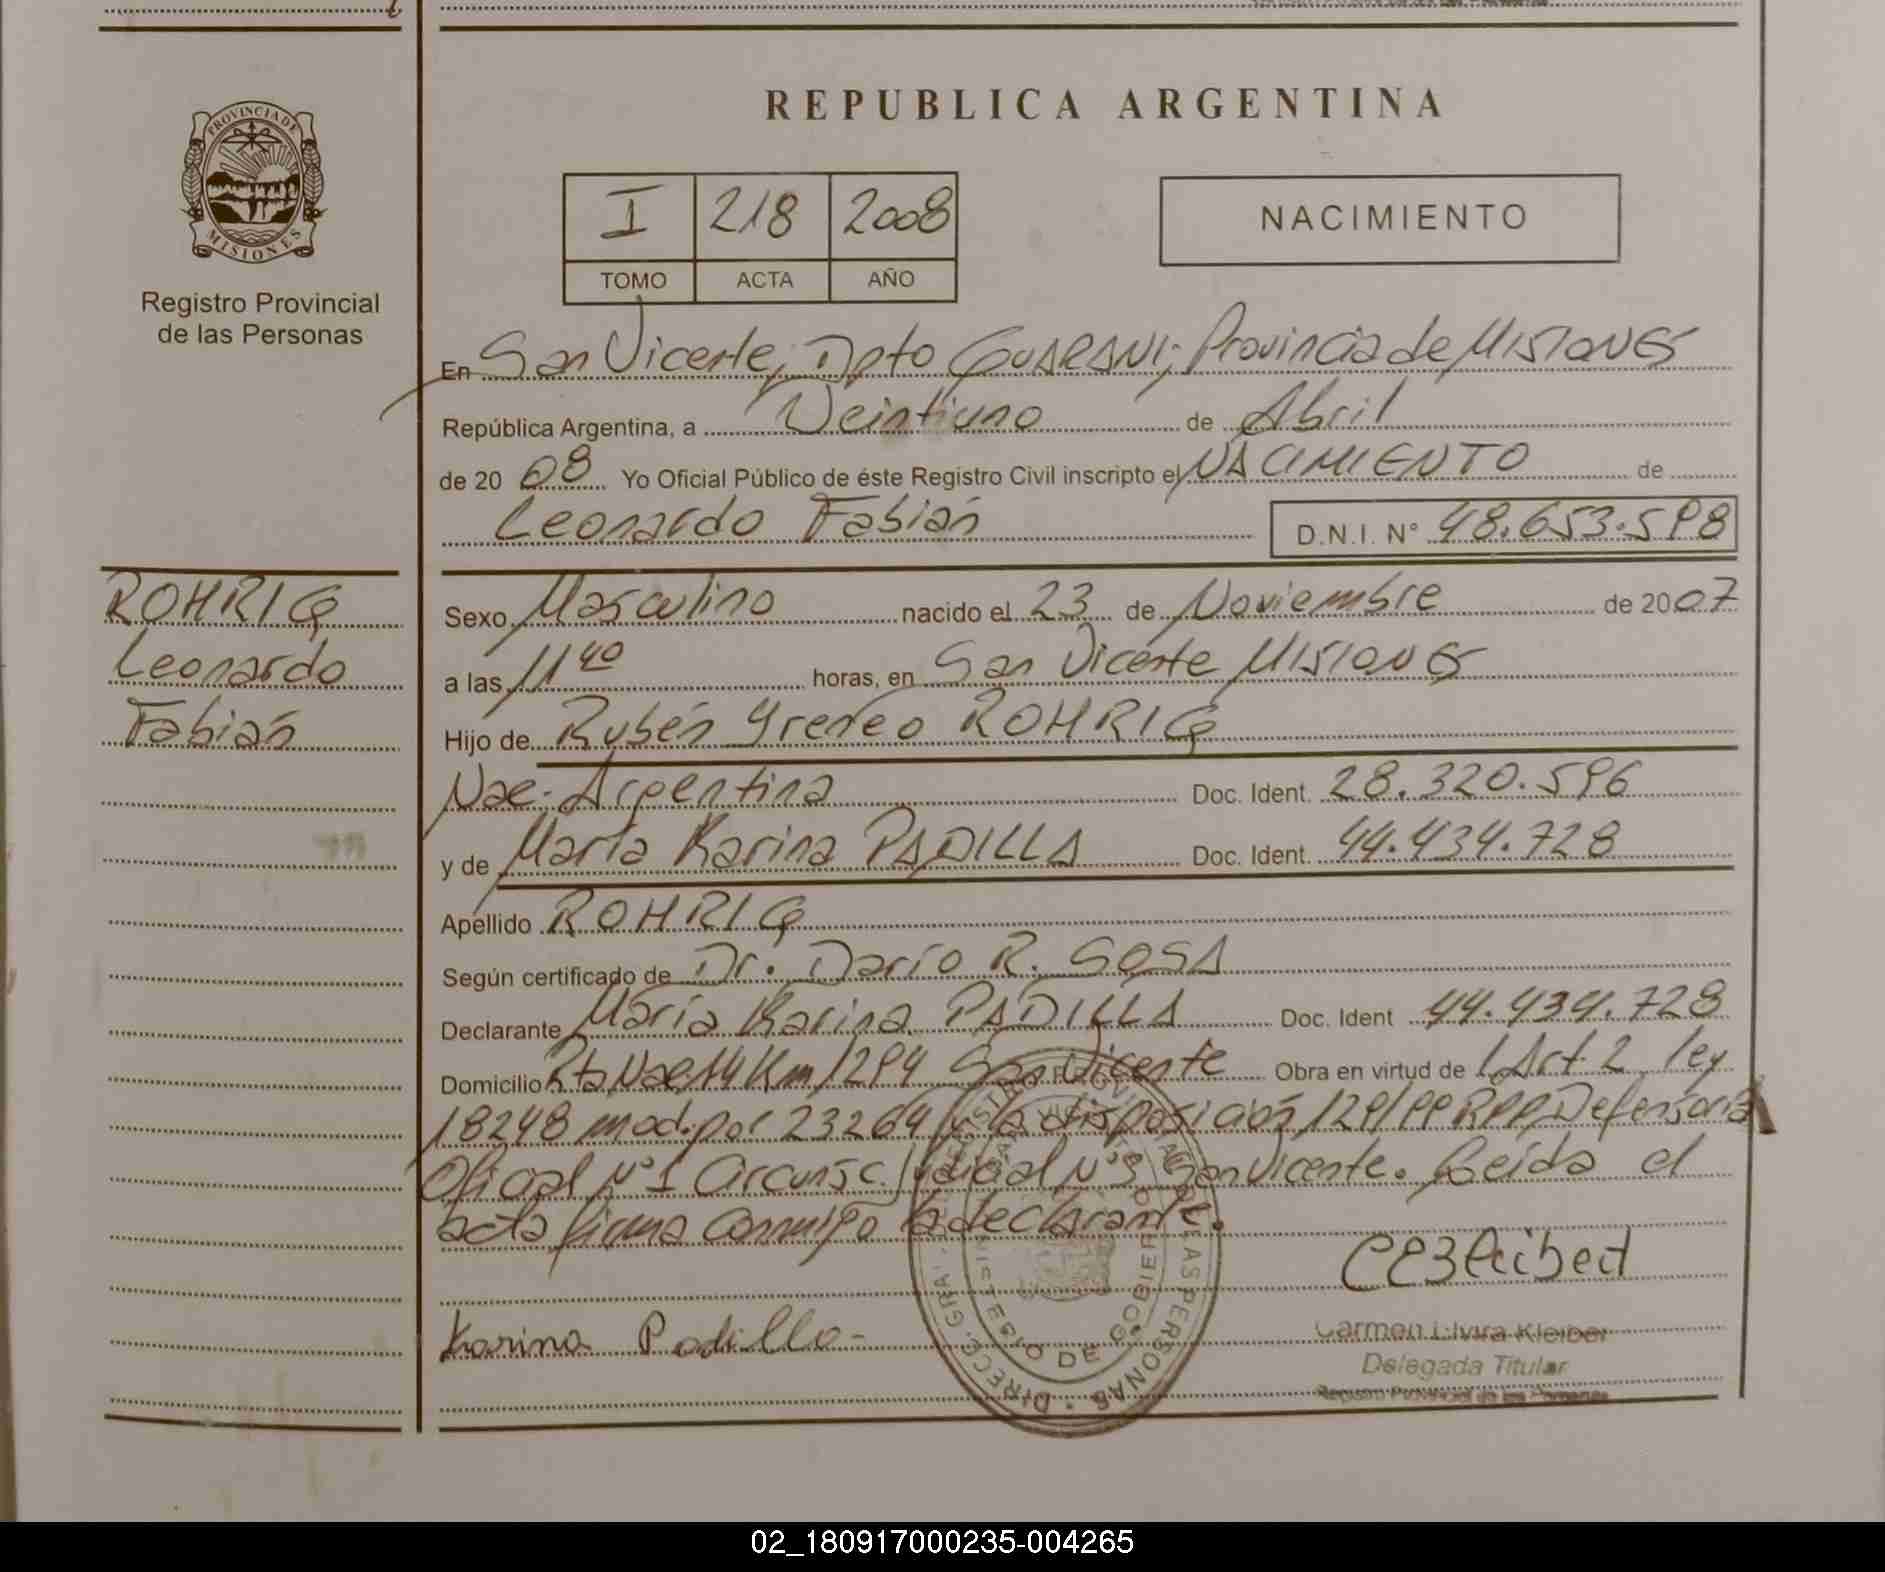 REPUBLICA ARGENTINA
PROVINCIA DE
MISIONES
Registro Provincial
de las Personas
I 218 2008
TOMO ACTA AÑO
NACIMIENTO
En San Vicente, Dpto GUARANI; Provincia de MISIONES
República Argentina, a Veintiuno de Abril
de 20 08 Yo Oficial Público de éste Registro Civil inscripto el NACIMIENTO de
Leonardo Fabián D.N.I. N° 48.653.598
ROHRIG
Leonardo
Fabián
Sexo Masculino nacido el 23 de Noviembre de 2007
a las 11 40 horas, en San Vicente MISIONES
Hijo de Rubén Yreneo ROHRIG
Nac. Argentina Doc. Ident. 28.320.596
y de María Karina PADILLA Doc. Ident. 44.434.728
Apellido ROHRIG
Según certificado de Dr. Darío R. SOSA
Declarante María Karina PADILLA Doc. Ident 44.434.728
Domicilio Rta Nac 14 Km 1294 San Vicente Obra en virtud de l Art 2 ley
18248 mod. por 23264 y la disposición 129/99 RPP Defensoría
Oficial N° 1 Circunsc. Judicial N° 3 San Vicente. Leída el
acta firma conmigo la declarante.
Karina Padilla-
Carmen Elvira Kleiber
Delegada Titular
Registro Provincial de las Personas
02_180917000235-004265